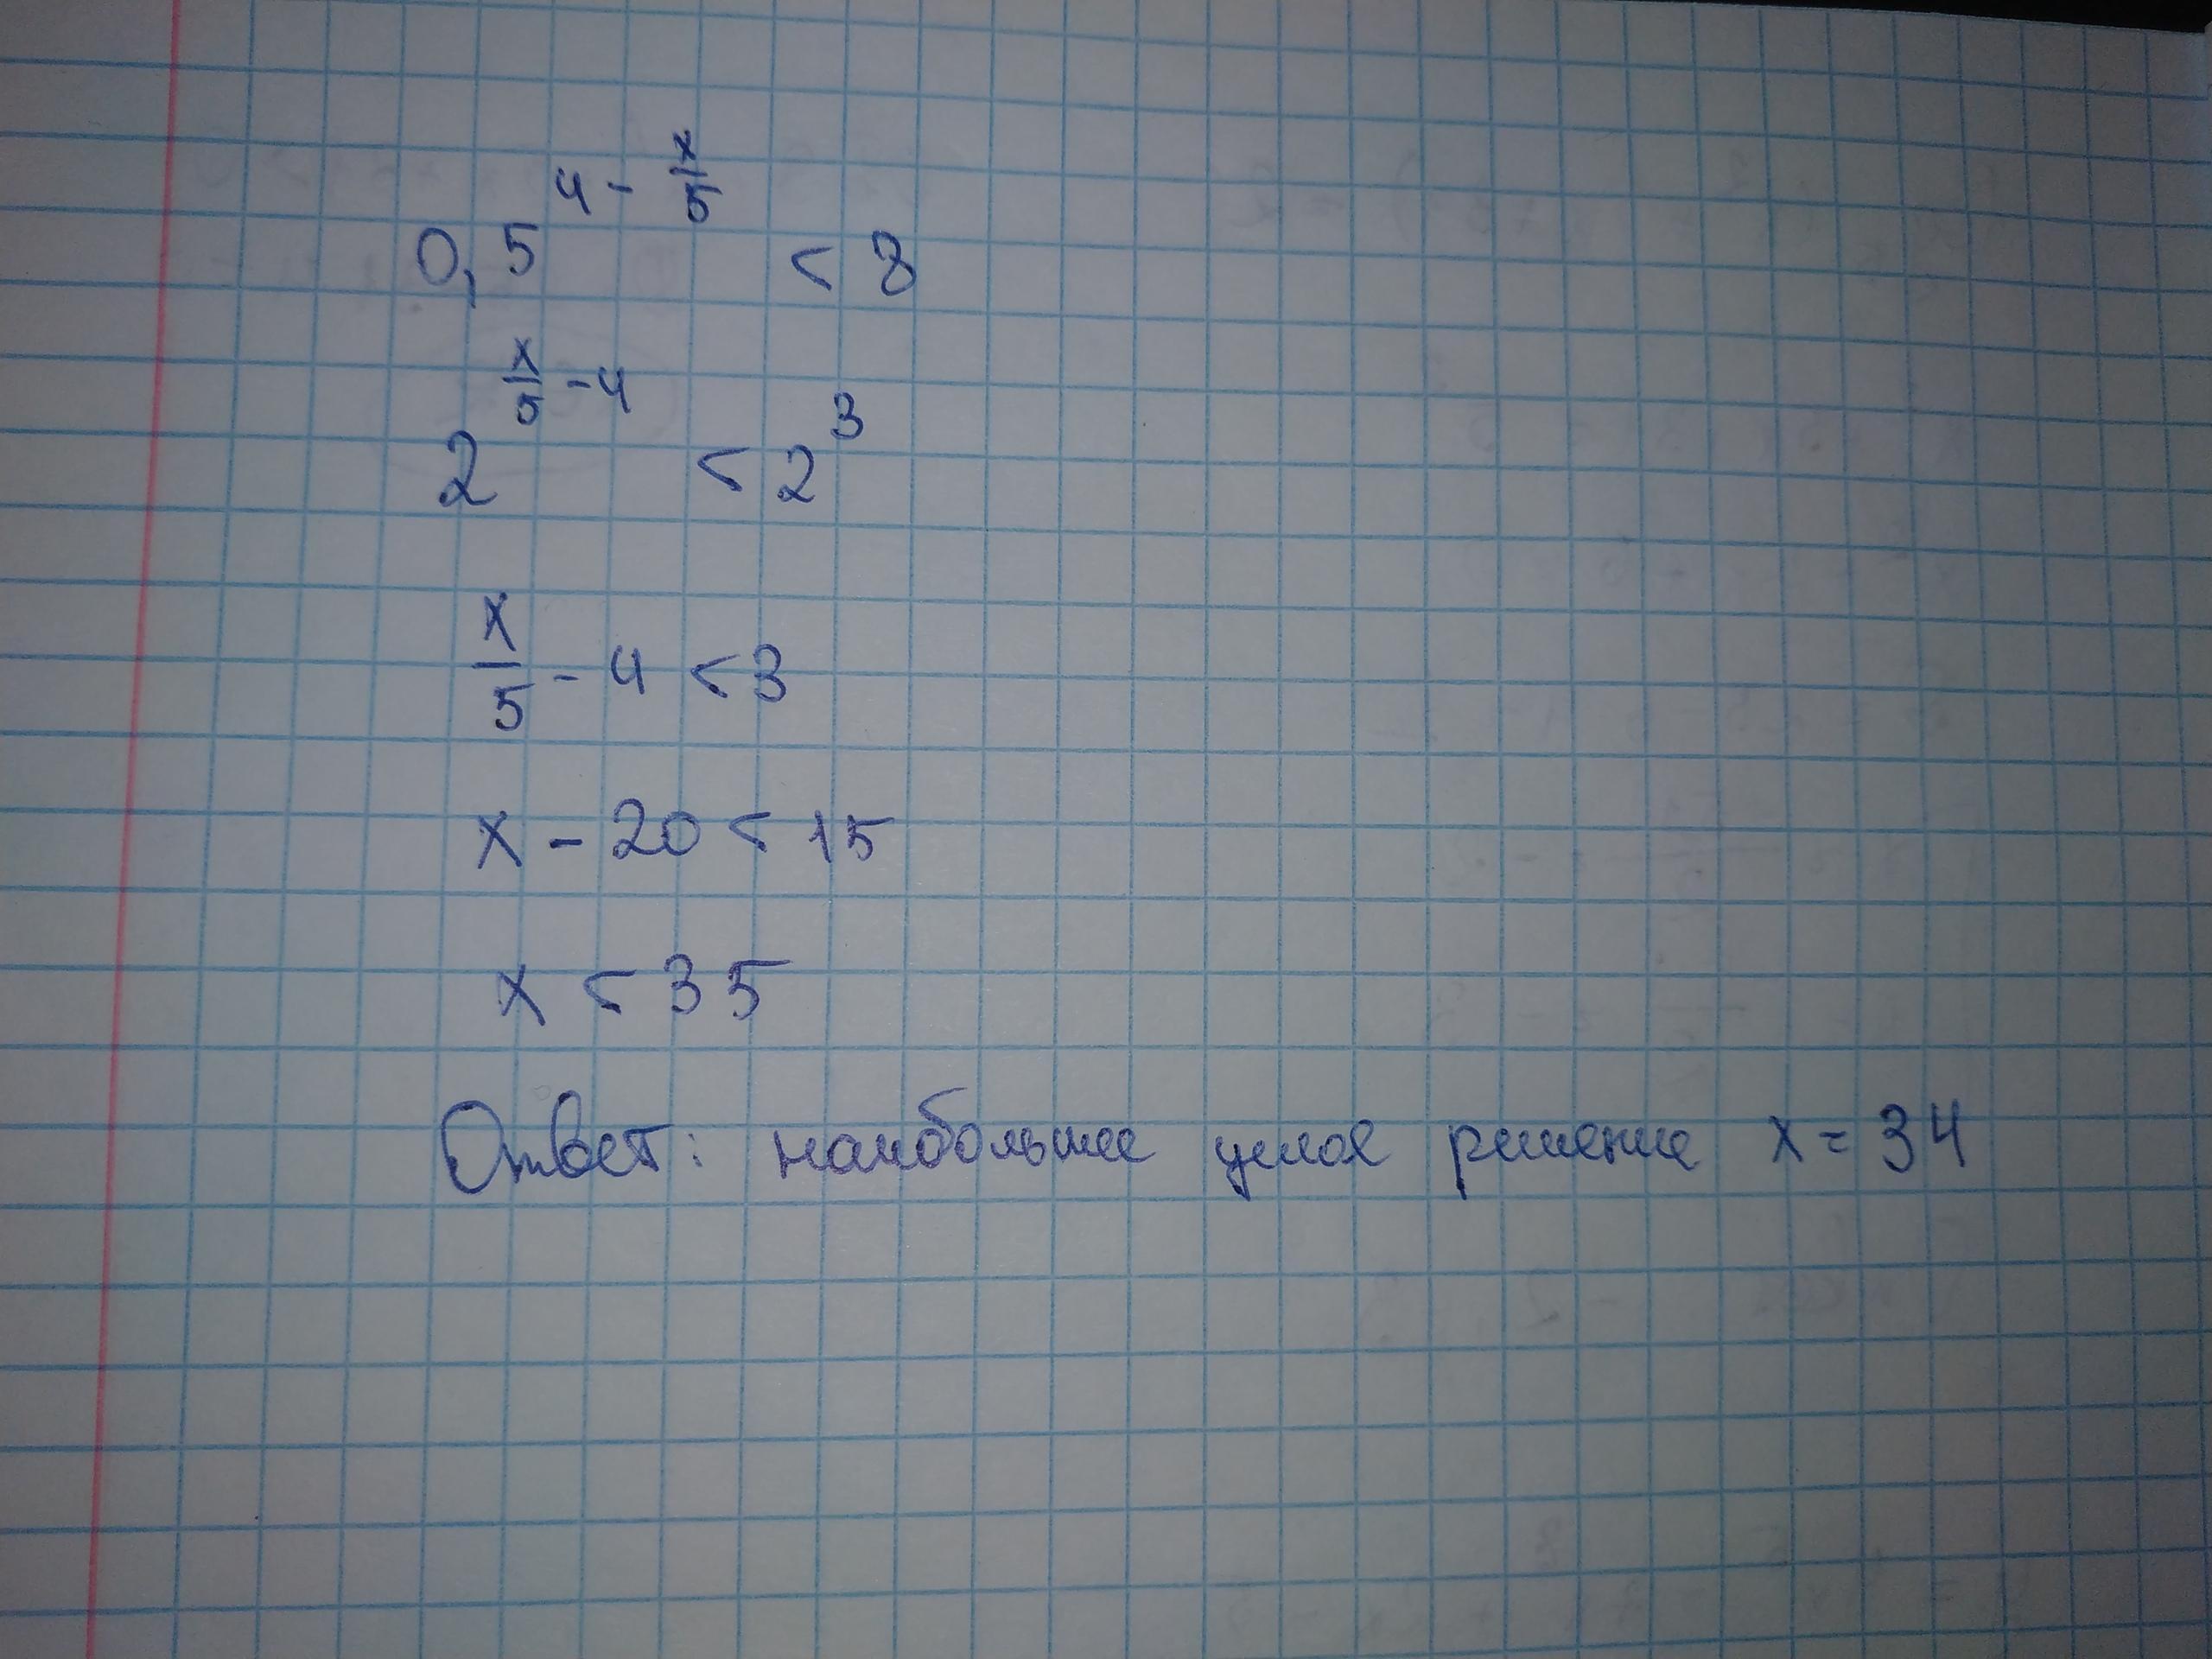 0,5^(4 - x/5) < 8
2^(x/5 - 4) < 2^3
x/5 - 4 < 3
x - 20 < 15
x < 35
Ответ: наибольшее целое решение x = 34